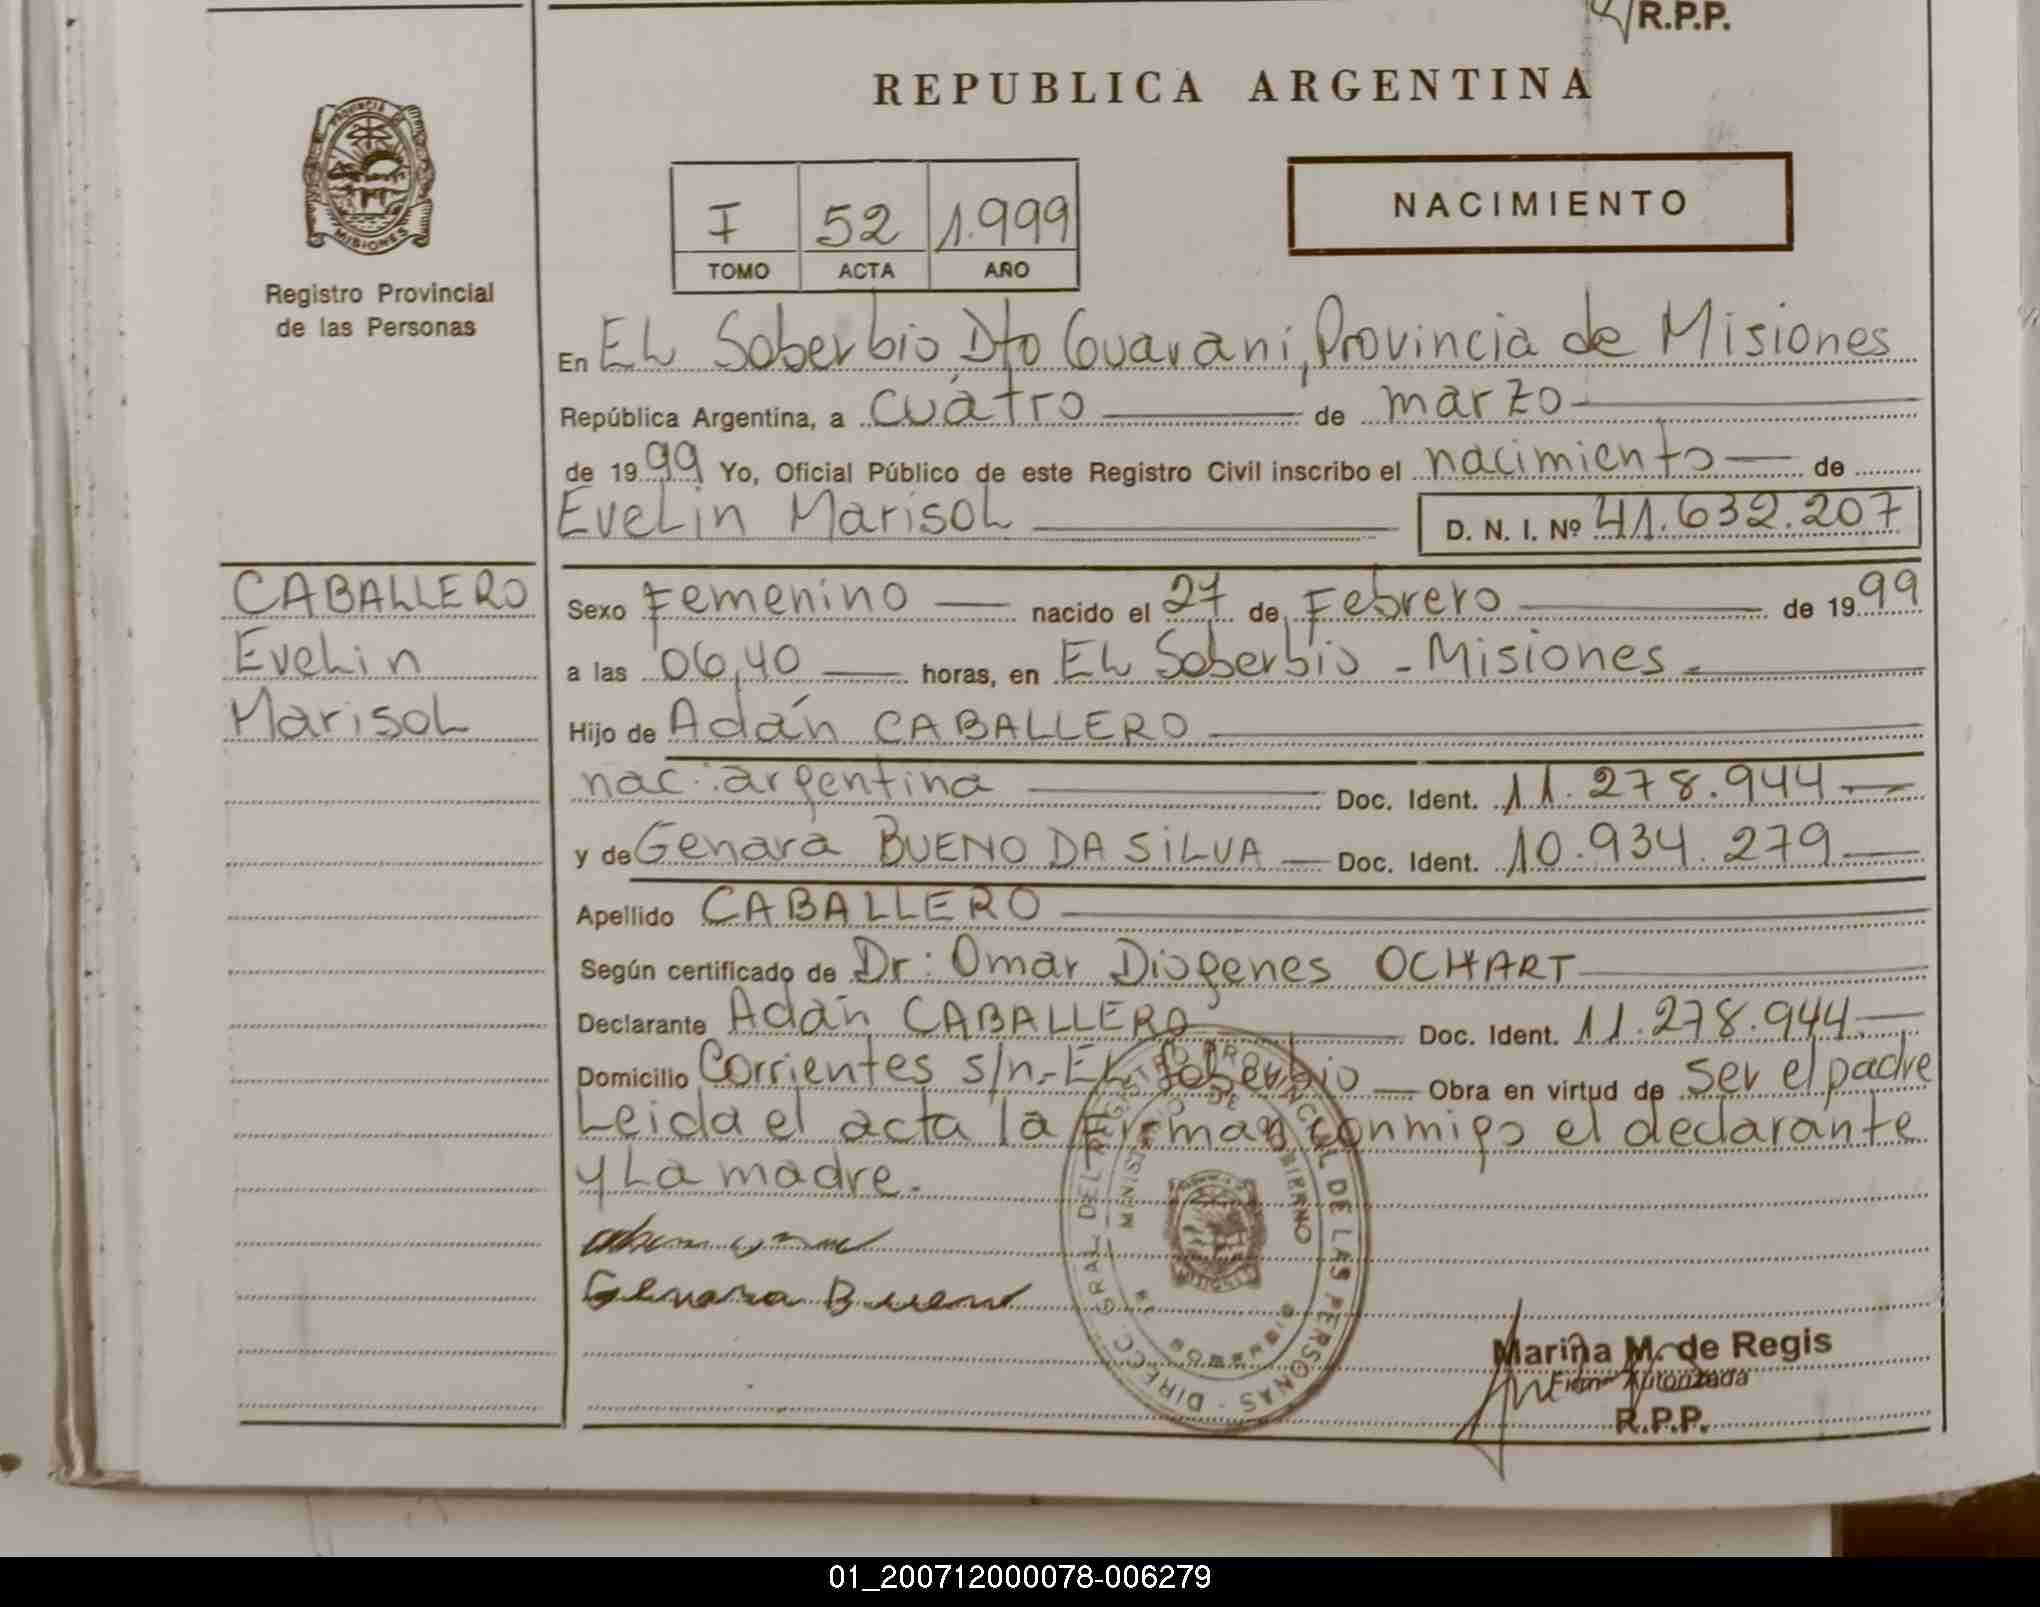 R.P.P.
REPUBLICA ARGENTINA
PROVINCIA
MISIONES
Registro Provincial
de las Personas
I 52 1.999
TOMO ACTA AÑO
NACIMIENTO
En El Soberbio Dto Guaraní, Provincia de Misiones
República Argentina, a cuátro de marzo
de 1999 Yo, Oficial Público de este Registro Civil inscribo el nacimiento de
Evelin Marisol D. N. I. Nº 41.632.207
CABALLERO
Evelin
Marisol
Sexo Femenino nacido el 27 de Febrero de 1999
a las 06,40 horas, en El Soberbio - Misiones
Hijo de Adán CABALLERO
nac: argentina Doc. Ident. 11.278.944
y de Genara BUENO DA SILVA Doc. Ident. 10.934.279
Apellido CABALLERO
Según certificado de Dr: Omar Diogenes OCHART
Declarante Adán CABALLERO Doc. Ident. 11.278.944
Domicilio Corrientes s/n.- El Soberbio Obra en virtud de ser el padre
Leida el acta la firman conmigo el declarante
y La madre.
Genara Bueno
DIRECC. GRAL. DEL REGISTRO PROVINCIAL DE LAS PERSONAS
MINISTERIO DE GOBIERNO
MISIONES
Marina M. de Regis
Firma Autorizada
R.P.P.
01_200712000078-006279